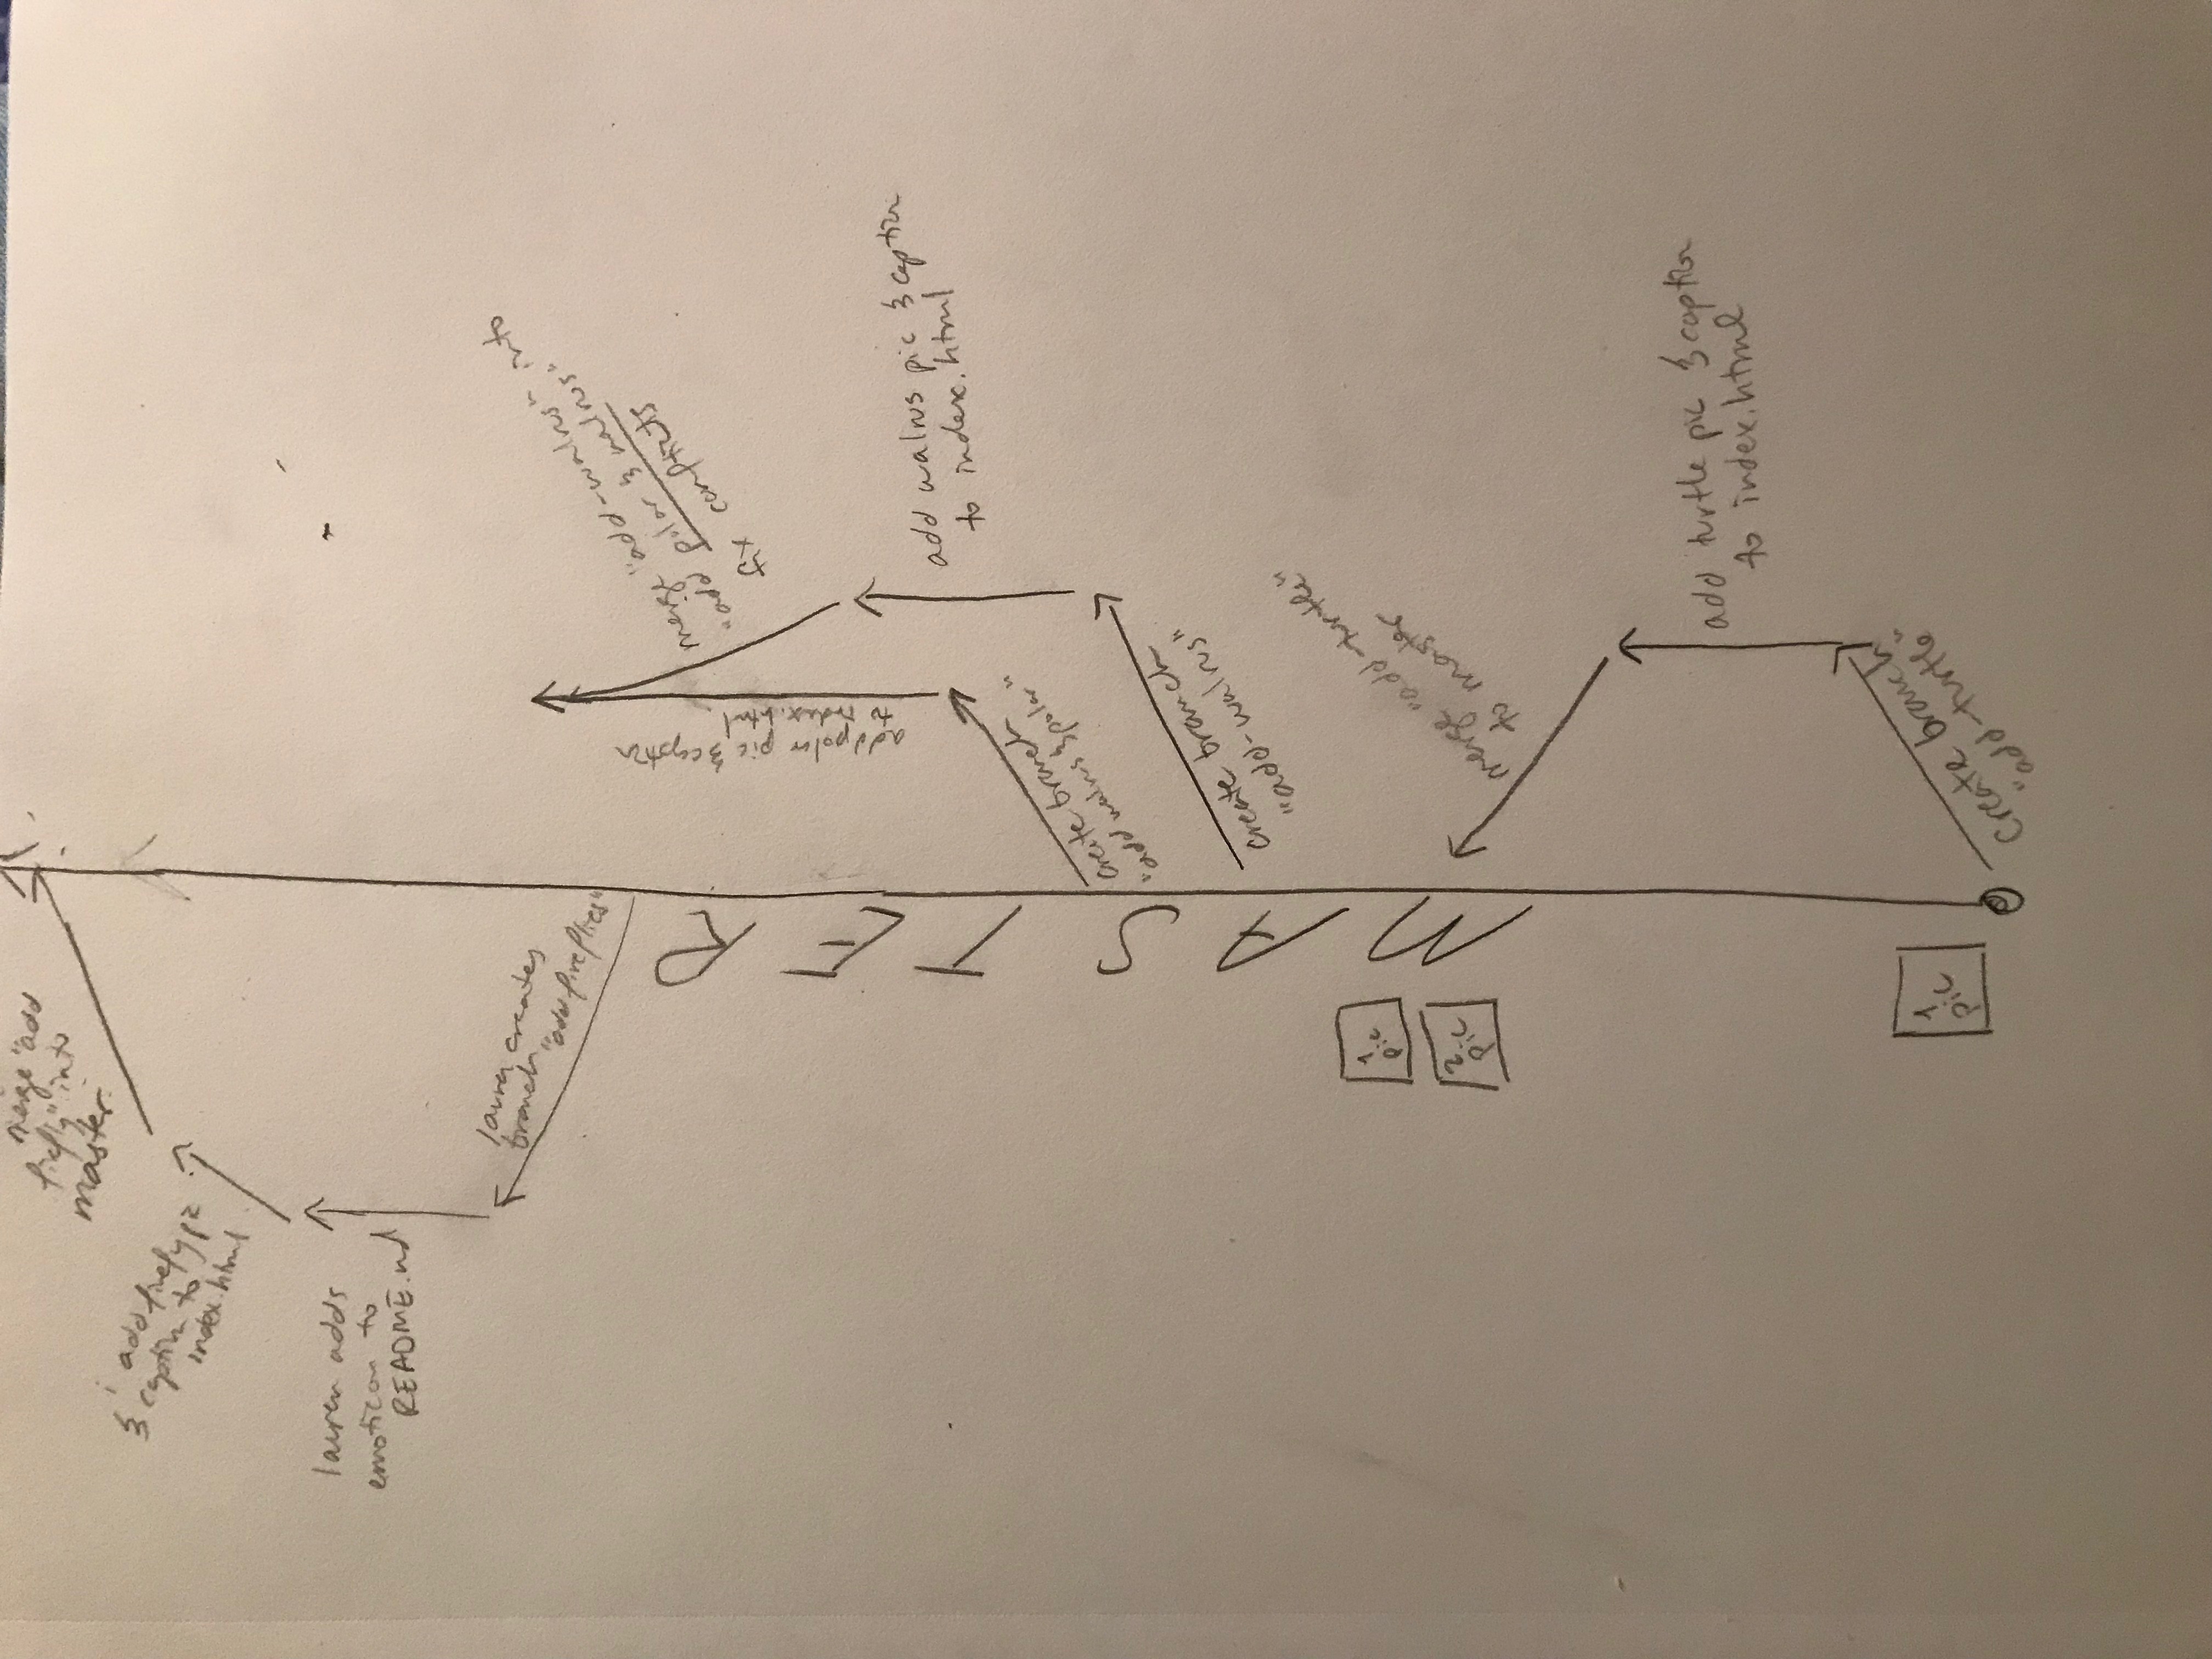 merge "add
firefly" into
master.
i add firefly pic
& caption to
index.html
lauren adds
emoticon to
README.md
lauren creates
branch
"add fireflies"
MASTER
add polar pic & caption
to index.html
merge "add-walrus" into
"add polar & walrus"
fix conflicts
add walrus pic & caption
to index.html
create branch
"add walrus & polar"
create branch
"add-walrus"
1
pic
2
pic
merge "add-turtle"
to master
add turtle pic & caption
to index.html
1
pic
Create branch
"add-turtle"